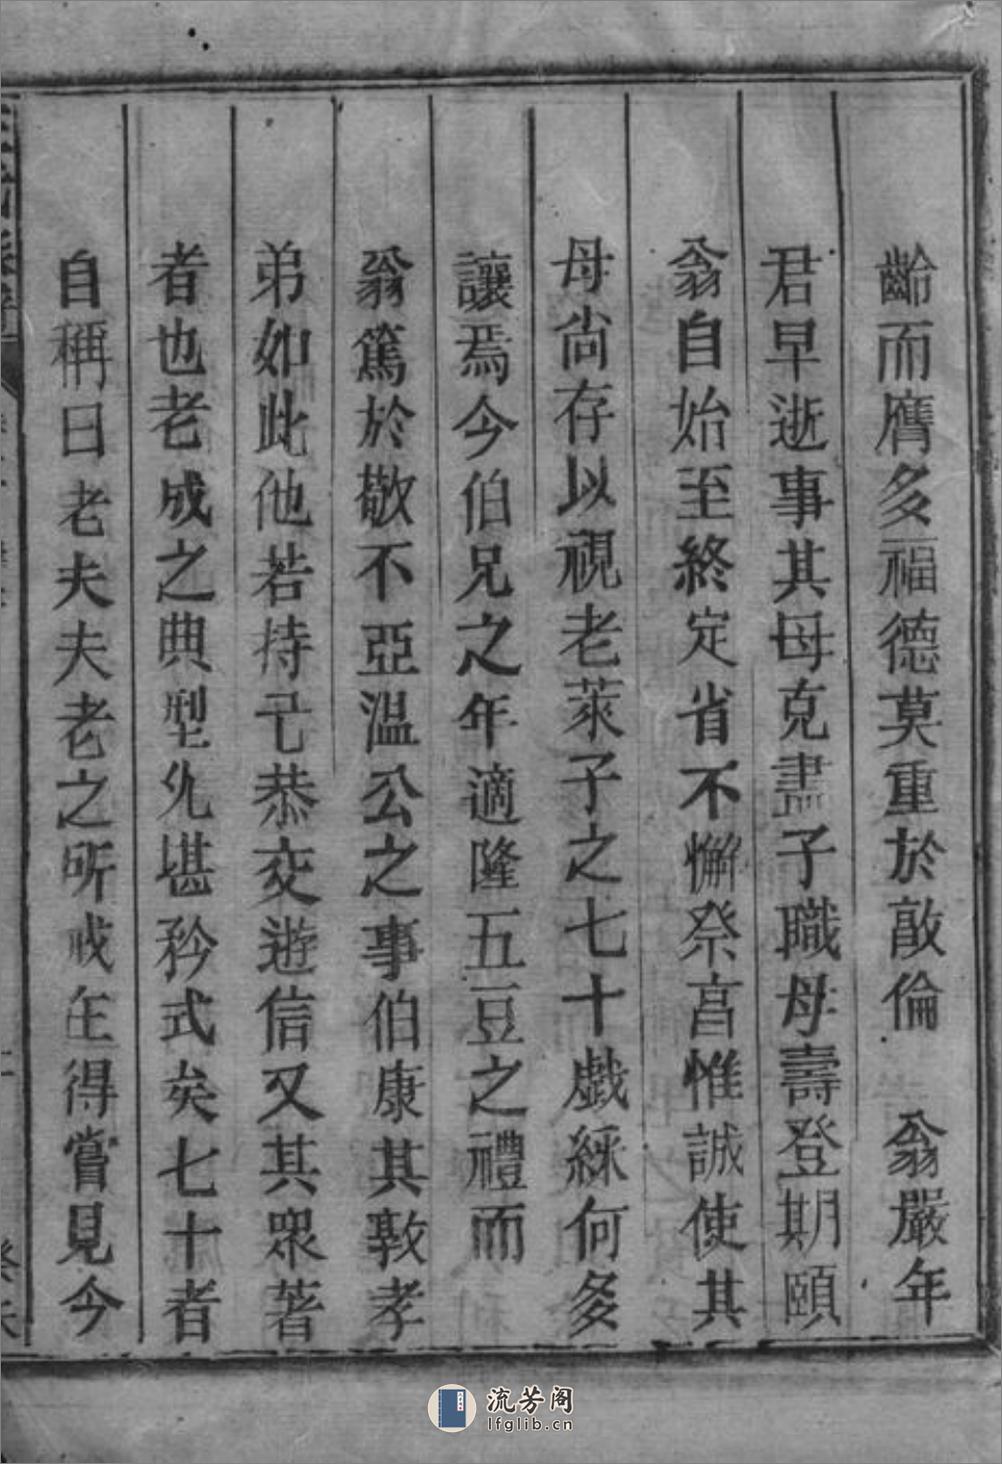 齡而膺多福德莫重於敦倫　翁嚴年
君早逝事其母克盡子職母壽登期頤
翁自始至終定省不懈祭亯惟誠使其
母尚存以視老萊子之七十戲綵何多
讓焉今伯兄之年適隆五豆之禮而
翁篤於敬不亞温公之事伯康其敦孝
弟如此他若持己恭交遊信又其衆著
者也老成之典型允堪矜式矣七十者
自稱曰老夫夫老之所戒在得嘗見今
流芳阁
lfglib.cn